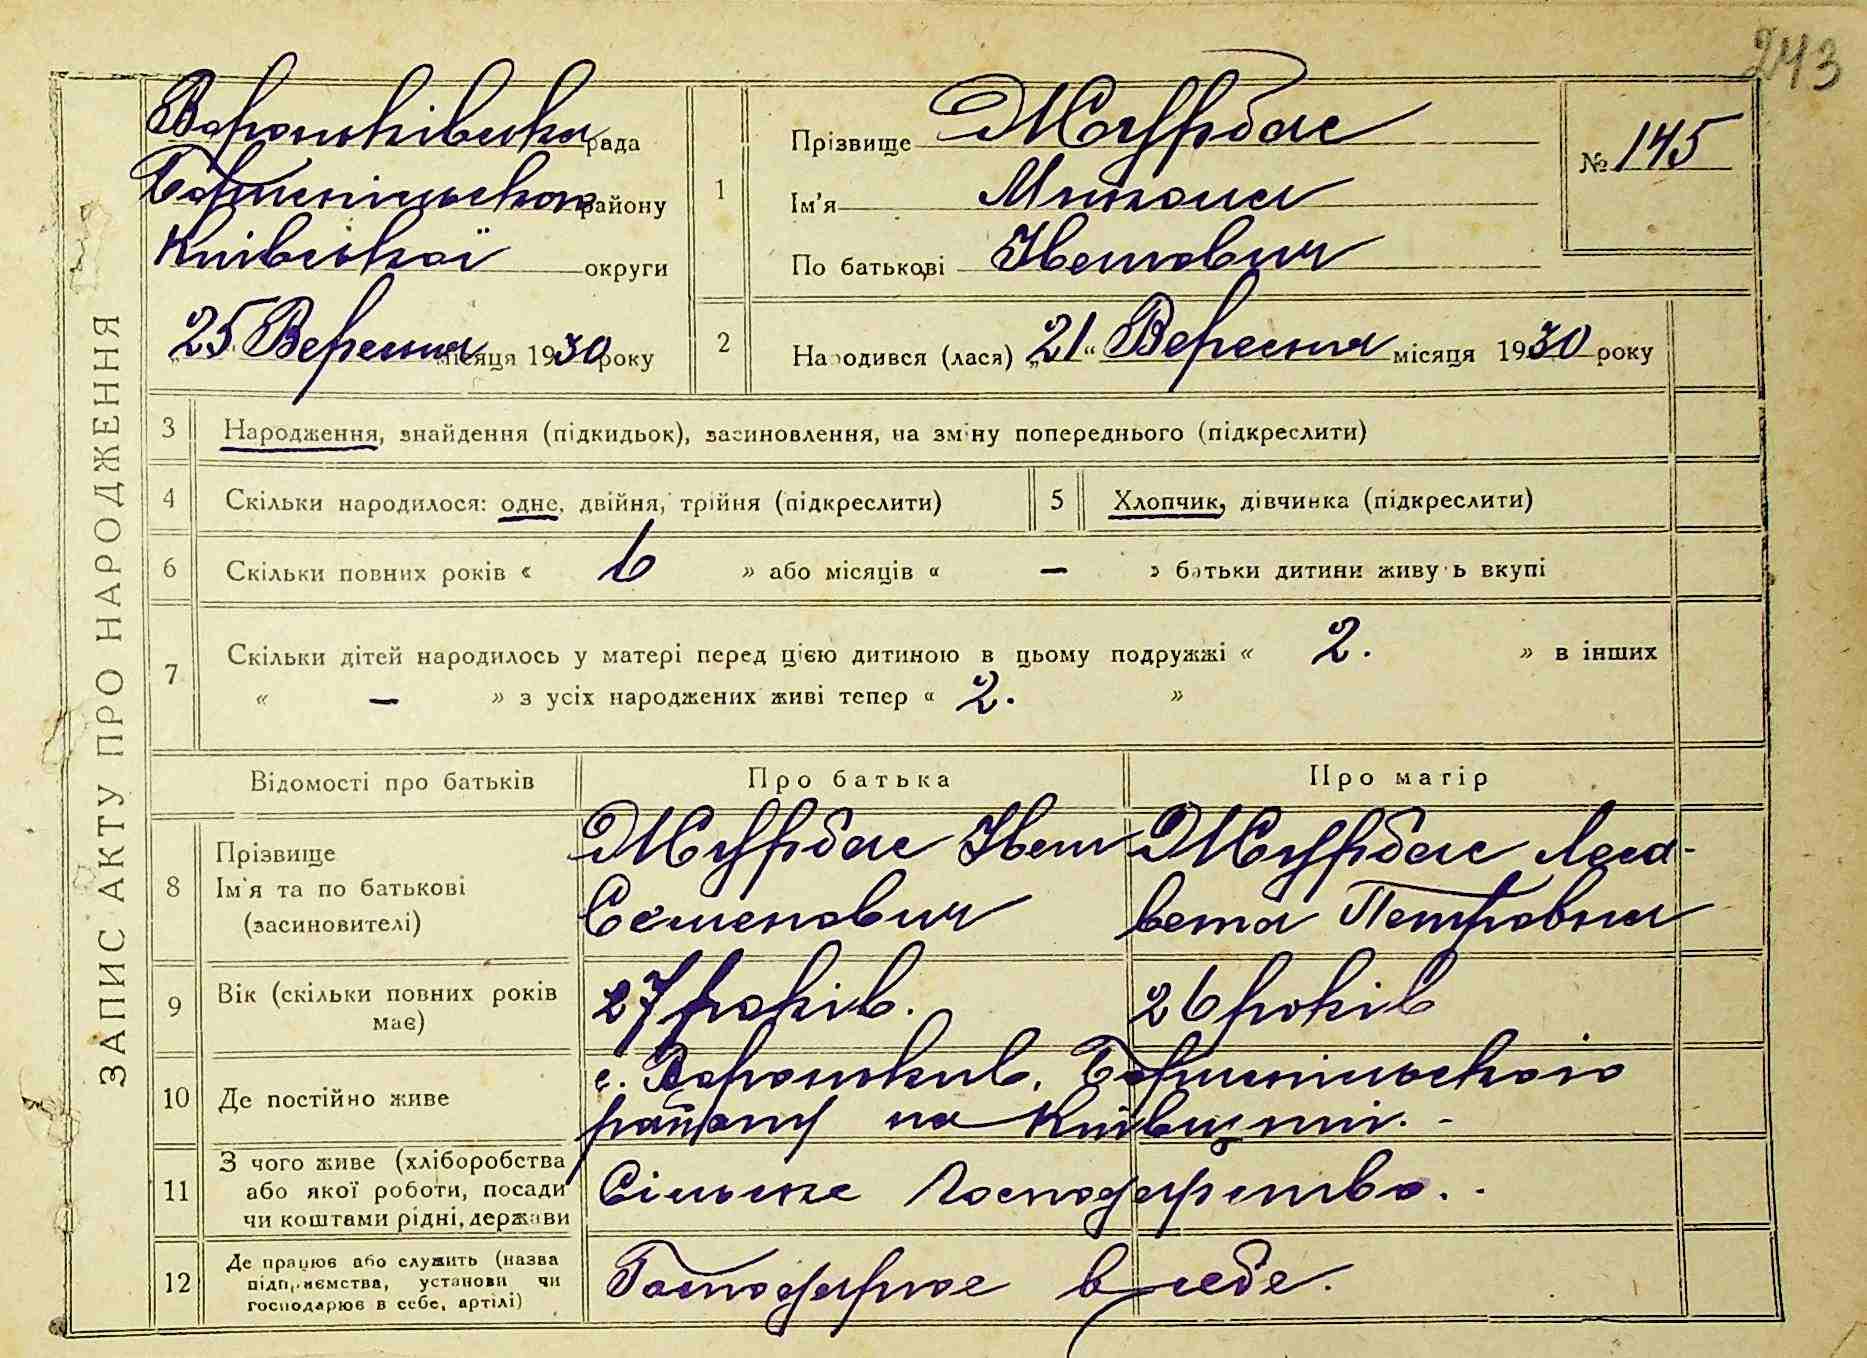 243
ЗАПИС АКТУ ПРО НАРОДЖЕННЯ
Вороньківська рада
Бориспільського району
Київської округи
"25" Вересня місяця 1930 року
1
Прізвище Журбас
Ім'я Микола
По батькові Іванович
№ 145
2
Народився (лася) „21" Вересня місяця 1930 року
3 Народження, знайдення (підкидьок), засиновлення, на зміну попереднього (підкреслити)
4 Скільки народилося: одне, двійня, трійня (підкреслити) 5 Хлопчик, дівчинка (підкреслити)
6 Скільки повних років « 6 » або місяців « — » батьки дитини живуть вкупі
7 Скільки дітей народилось у матері перед цією дитиною в цьому подружжі « 2. » в інших
« — » з усіх народжених живі тепер « 2. »
Відомості про батьків Про батька Про матір
8 Прізвище
Ім'я та по батькові
(засиновителі)
Журбас Іван
Семенович
Журбас Лса-
вета Петровна
9 Вік (скільки повних років
має)
27 років. 26 років
10 Де постійно живе
с. Вороньків, Бориспільського
району на Київщині. -
11 З чого живе (хліборобства
або якої роботи, посади
чи коштами рідні, держави
Сільське Господарство. -
12 Де працює або служить (назва
підприємства, установи чи
господарює в себе, артілі)
Господарює в себе.